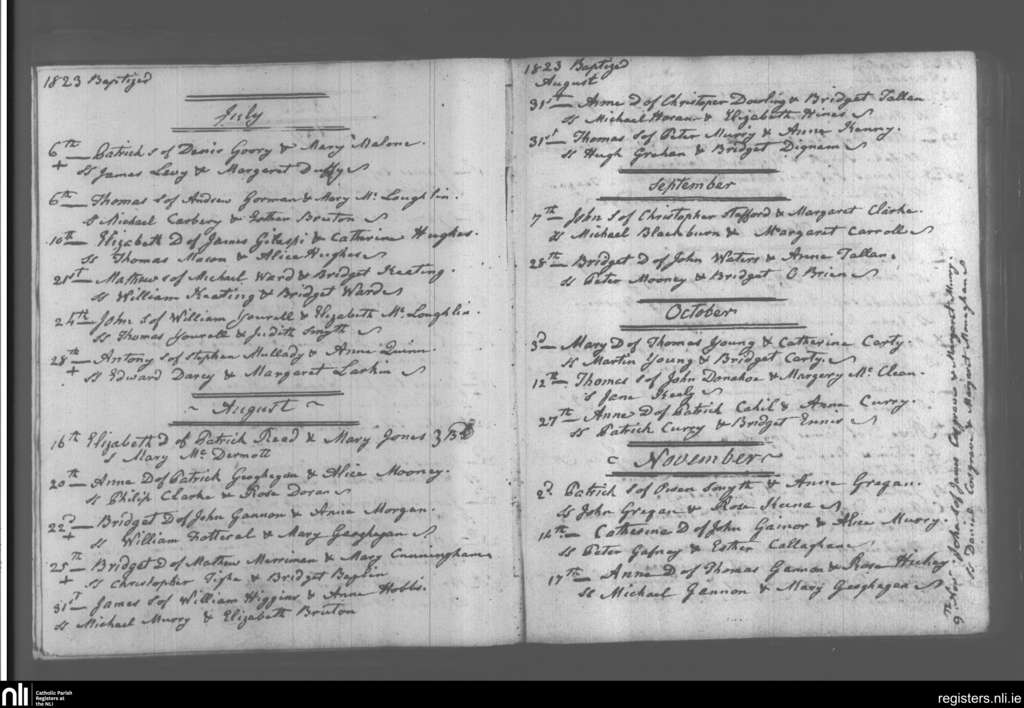 1823 Baptized
July
6th Patrick S of Denis Goory & Mary Malone.
+ Ss James Levy & Margaret Duffy
6th Thomas S of Andrew Gorman & Mary Mc Loughlin.
S Michael Carbery & Esther Bruton
10th Elizabeth D of James Gilespi & Catherine Hughes.
Ss Thomas Mason & Alice Hughes
21st Mathew S of Michael Ward & Bridget Keating.
Ss William Keating & Bridget Ward
24th John S of William Yourell & Elizabeth Mc Loughlin.
Ss Thomas Yourell & Judith Smyth
28th Antony S of Stephen Mullady & Anne Quinn.
+ Ss Edward Darcy & Margaret Larkin
~ August ~
16th Elizabeth D of Patrick Read & Mary Jones
S Mary Mc Dermott
20th Anne D of Patrick Geoghegan & Alice Mooney.
Ss Philip Clarke & Rose Doran
22d Bridget D of John Gannon & Anne Morgan.
+ Ss William Fotteral & Mary Geoghegan
25th Bridget D of Mathew Merriman & Mary Cunningham
+ Ss Christopher Tighe & Bridget
31st James S of William Higgins & Anne Hobbs.
Ss Michael Murry & Elizabeth Bruton
1823 Baptized
August
31st Anne D of Christoper Dowling & Bridget Tallan
Ss Michael Horan & Elizabeth Hines
31st Thomas S of Peter Murry & Anne Kenny.
Ss Hugh Graham & Bridget Dignam
September
7th John S of Christopher Stafford & Margaret Clarke.
Ss Michael Blackburn & Margaret Carroll
28th Bridget D of John Waters & Anne Tallan.
Ss Peter Mooney & Bridget O Brien
October
3d Mary D of Thomas Young & Catherine Carty.
Ss Martin Young & Bridget Carty.
12th Thomas S of John Donahoe & Margery Mc Clean.
S Jane Kealy
27th Anne D of Patrick Cahil & Anne Curry.
Ss Patrick Curry & Bridget Ennis
November
2d Patrick S of Owen Smyth & Anne Gregan.
Ss John Gregan & Rose Keena
14th Catherine D of John Gainor & Alice Murry.
Ss Peter Gafney & Esther Callaghan
17th Anne D of Thomas Gannon & Rose Hickey
Ss Michael Gannon & Mary Geoghegan
9th Novr John S of James Cosgrave & Margaret Murry.
Ss Daniel Cosgrave & Margaret
nli
Catholic Parish
Registers at
the NLI
registers.nli.ie